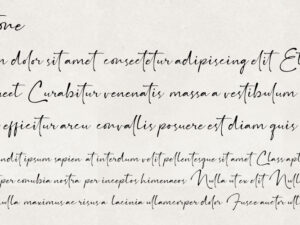 one
dolor sit amet consectetur adipiscing elit Et
Curabitur venenatis massa a vestibulum
efficitur arcu convallis posuere est diam quis
ndit ipsum sapien at interdum velit pellentesque sit amet Class apt
per conubia nostra per inceptos himenaeos Nulla ut ex elit Null
nulla maximus ac risus a lacinia ullamcorper dolor Fusce auctor ull